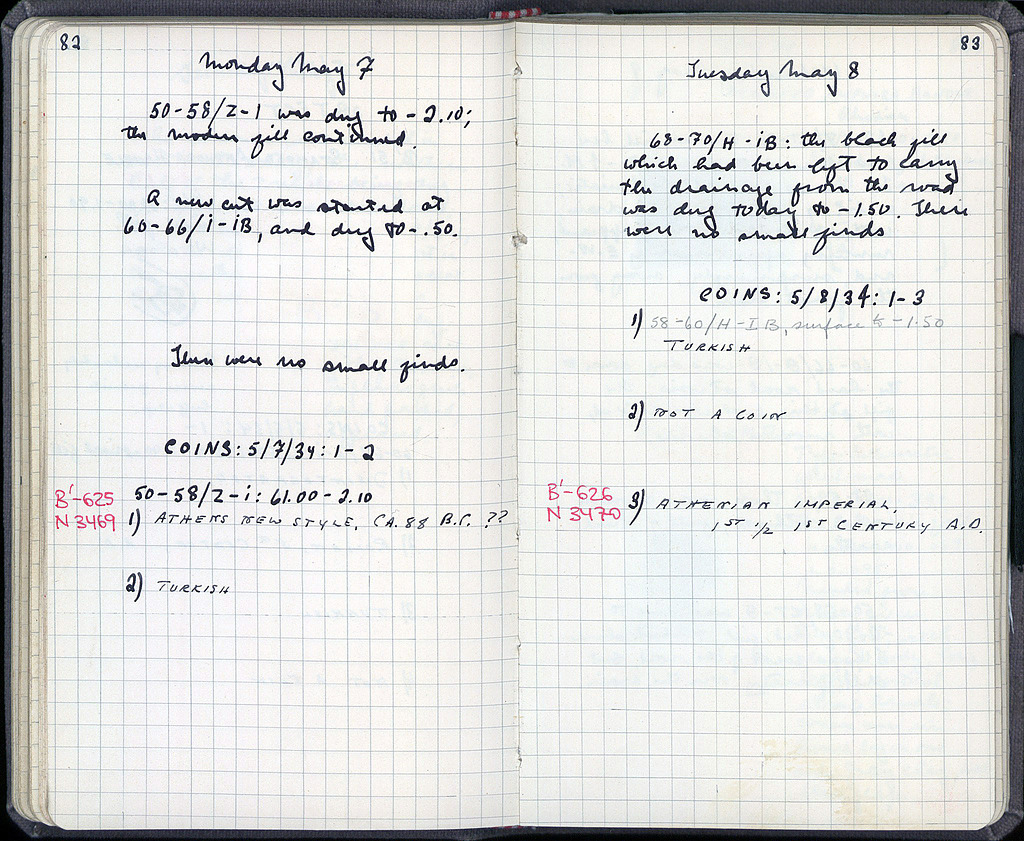 82
Monday May 7
50-58/Z-1 was dug to -2.10;
the modern fill continued.
A new cut was started at
60-66/i-iB, and dug to -.50.
There were no small finds.
COINS: 5/7/34: 1-2
50-58/Z-i: 61.00-2.10
B'-625
N 3469
1) ATHENS NEW STYLE, CA. 88 B.C. ??
2) TURKISH
83
Tuesday May 8
68-70/H-iB: the black fill
which had been left to carry
the drainage from the road
was dug today to -1.50. There
were no small finds
COINS: 5/8/34: 1-3
1) 58-60/H-IB, surface to -1.50
TURKISH
2) NOT A COIN
B'-626
N 3470
3) ATHENIAN IMPERIAL,
1ST 1/2 1ST CENTURY A.D.